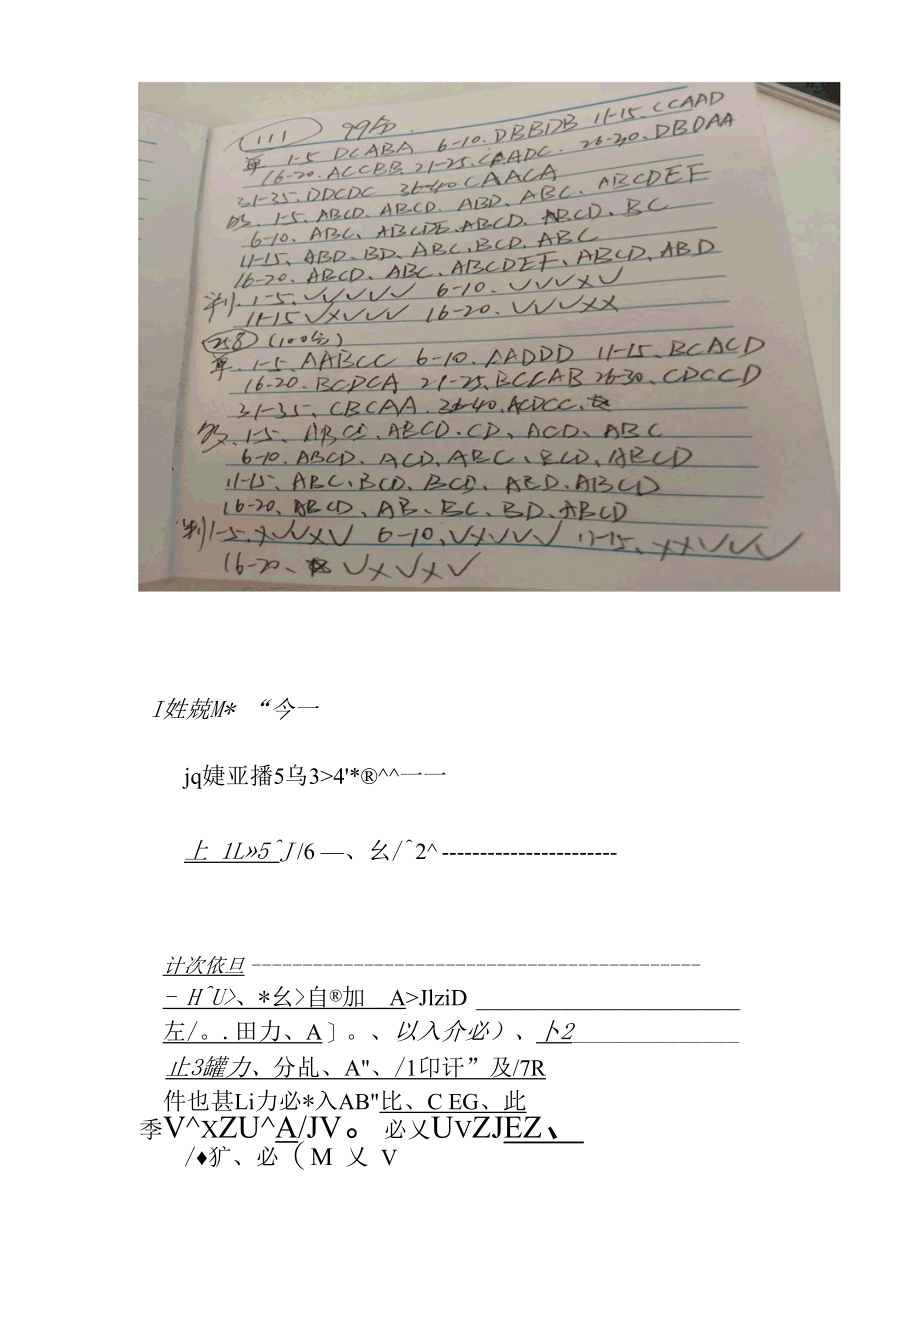 111 99分
单 1-5 DCABA 6-10.DBBDB 11-15.CCAAD
16-20.ACCBB 21-25.CAADC. 26-30.DBDAA
31-35.DDCDC 36-40 CAACA
多、1-5、ABCD、ABCD、ABD、ABC、ABCDEF
6-10、ABC、ABCDE、ABCD、ABCD、BC
11-15、ABD、BD、ABC、BCD、ABC
16-20、ABCD、ABC、ABCDEF、ABCD、ABD
判、1-5、√√√√√ 6-10、√√√X√
11-15 √X√√√ 16-20、√√√XX
258 (100分)
单、1-5、AABCC 6-10、AADDD 11-15、BCACD
16-20、BCDCA 21-25、BCCAB 26-30、CDCCD
31-35、CBCAA 36-40、ACDCC、
多、1-5、ABCD、ABCD、CD、ACD、ABC
6-10、ABCD、ACD、ABC、BCD、ABCD
11-15、ABC、BCD、BCD、ABD、ABCD
16-20、ABCD、AB、BC、BD、ABCD
判1-5、X√√X√ 6-10、√X√√√ 11-15、XX√√√
16-20、√X√X√
I姓兢M* “今一
jq婕亚播5乌3>4'*®^^一一
上 1L»5^J/6 —、幺/^2^-----------------------
计次依旦 --------------------------------------------
- H^U>、*幺>自®加 A>JlziD
左/。.田力、A〕。、以入介必）、卜2
止3罐力、分乩、A"、/1印讦”及/7R
件也甚Li力必*入AB"比、C EG、此
季V^xZU^A/JV。必乂UVZJEZ、
/♦犷、必（M 乂 V